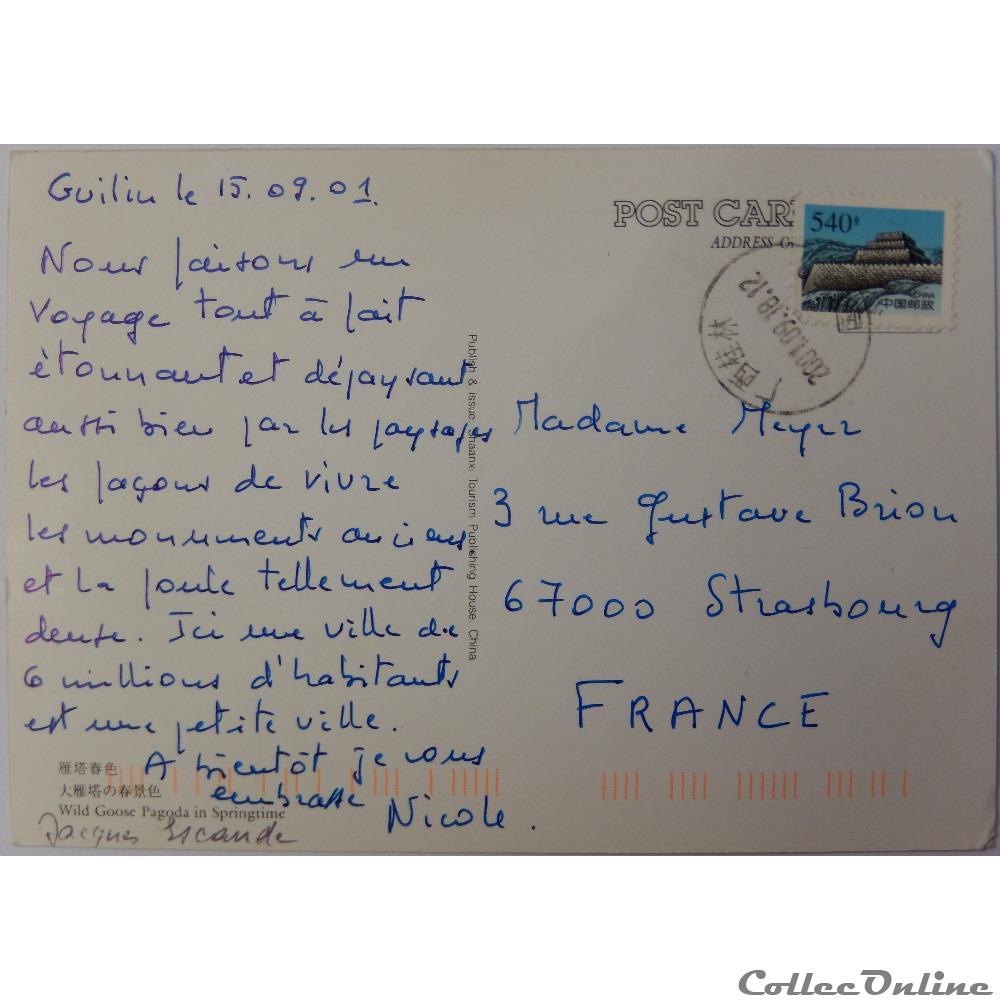 Guilin le 15.09.01.
Nous faisons un
voyage tout à fait
étonnant et dépaysant
aussi bien par les paysages
les façons de vivre
les monuments anciens
et la foule tellement
dense. Ici une ville de
6 millions d'habitants
est une petite ville.
A bientôt je vous
embrasse
Nicole.
Jacques Escande
雁塔春色
大雁塔の春景色
Wild Goose Pagoda in Springtime
Publish & issue: Shaanxi Tourism Publishing House, China
POST CAR
ADDRESS O
540
CHINA
中国邮政
广西桂林
2001.09.18.12
Madame Meyer
3 rue Gustave Brion
67000 Strasbourg
FRANCE
CollecOnline